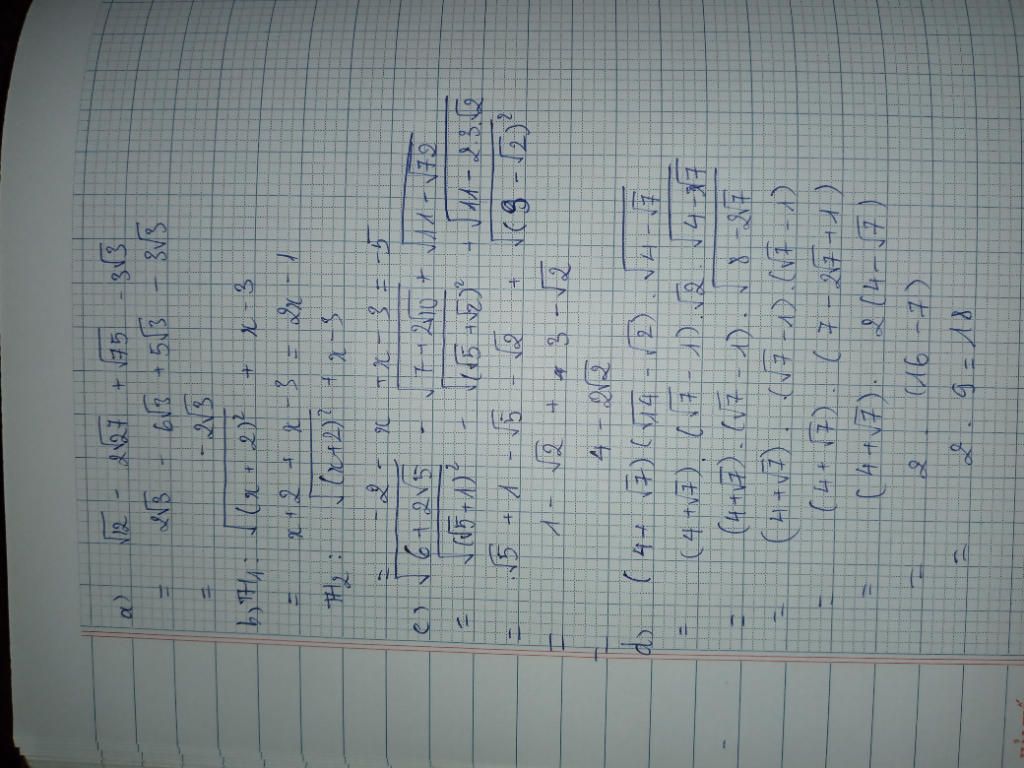 a) √12 - 2√27 + √75 - 3√3
= 2√3 - 6√3 + 5√3 - 3√3
= -2√3
b) TH₁: √(x+2)² + x - 3
= x+2 + x - 3 = 2x - 1
TH₂: √(x+2)² + x - 3
= -2 - x + x - 3 = -5
c) √(6+2√5) - √(7+2√10) + √(11-√72)
= √(√5+1)² - √(√5+√2)² + √(11-23√2)
= √5 + 1 - √5 - √2 + √(9-√2)²
= 1 - √2 + 3 - √2
= 4 - 2√2
d) (4+√7)(√14 - √2) . √(4-√7)
= (4+√7) . (√7 - 1) . √2 . √(4-√7)
= (4+√7) . (√7 - 1) . √(8-2√7)
= (4+√7) . (√7 - 1) . (√7 - 1)
= (4+√7) . (7 - 2√7 + 1)
= (4+√7) . 2(4 - √7)
= 2 . (16 - 7)
= 2 . 9 = 18